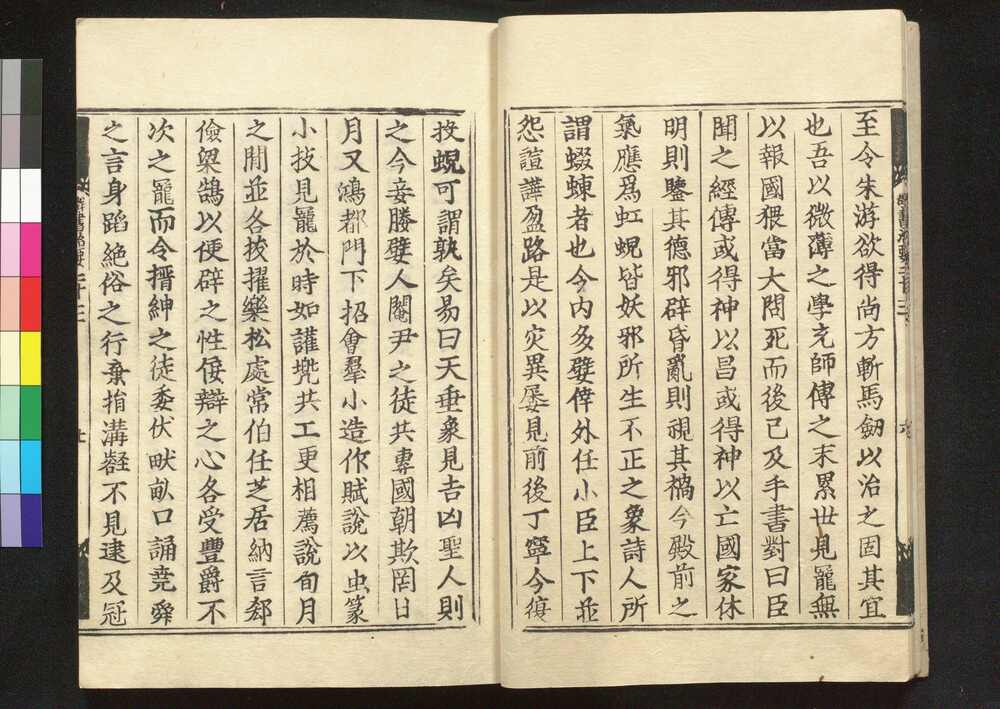 至令朱游欲得尚方斬馬劒以治之固其宜
也吾以微薄之學充師傅之末累世見寵無
以報國猥當大問死而後已乃手書對曰臣
聞之經傳或得神以昌或得神以亡國家休
明則鑒其德邪辟昏亂則視其禍今殿前之
氣應爲虹蜺皆妖邪所生不正之象詩人所
謂蝃蝀者也今內多嬖倖外任小臣上下並
怨諠譁盈路是以灾異屢見前後丁寧今復
投蜺可謂孰矣易曰天垂象見吉凶聖人則
之今妾媵嬖人閹尹之徒共專國朝欺罔日
月又鴻都門下招會羣小造作賦說以虫篆
小技見寵於時如讙兠共工更相薦說旬月
之閒並各拔擢樂松處常伯任芝居納言郄
儉梁鵠以便辟之性佞辯之心各受豐爵不
次之寵而令搢紳之徒委伏畎畝口誦堯舜
之言身蹈絕俗之行棄捐溝壑不見逮及冠
群書治要